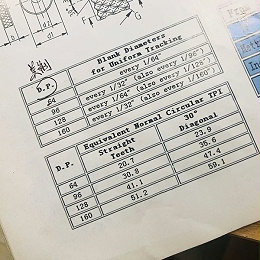 Blank Diameters
for Uniform Tracking
D.P.
64 every 1/64"
96 every 1/32" (also every 1/96")
128 every 1/64" (also every 1/128")
160 every 1/32" (also every 1/160")
Equivalent Normal Circular IPI
D.P. Straight Teeth 30° Diagonal
64 20.7 23.9
96 30.8 35.6
128 41.1 47.4
160 51.2 59.1